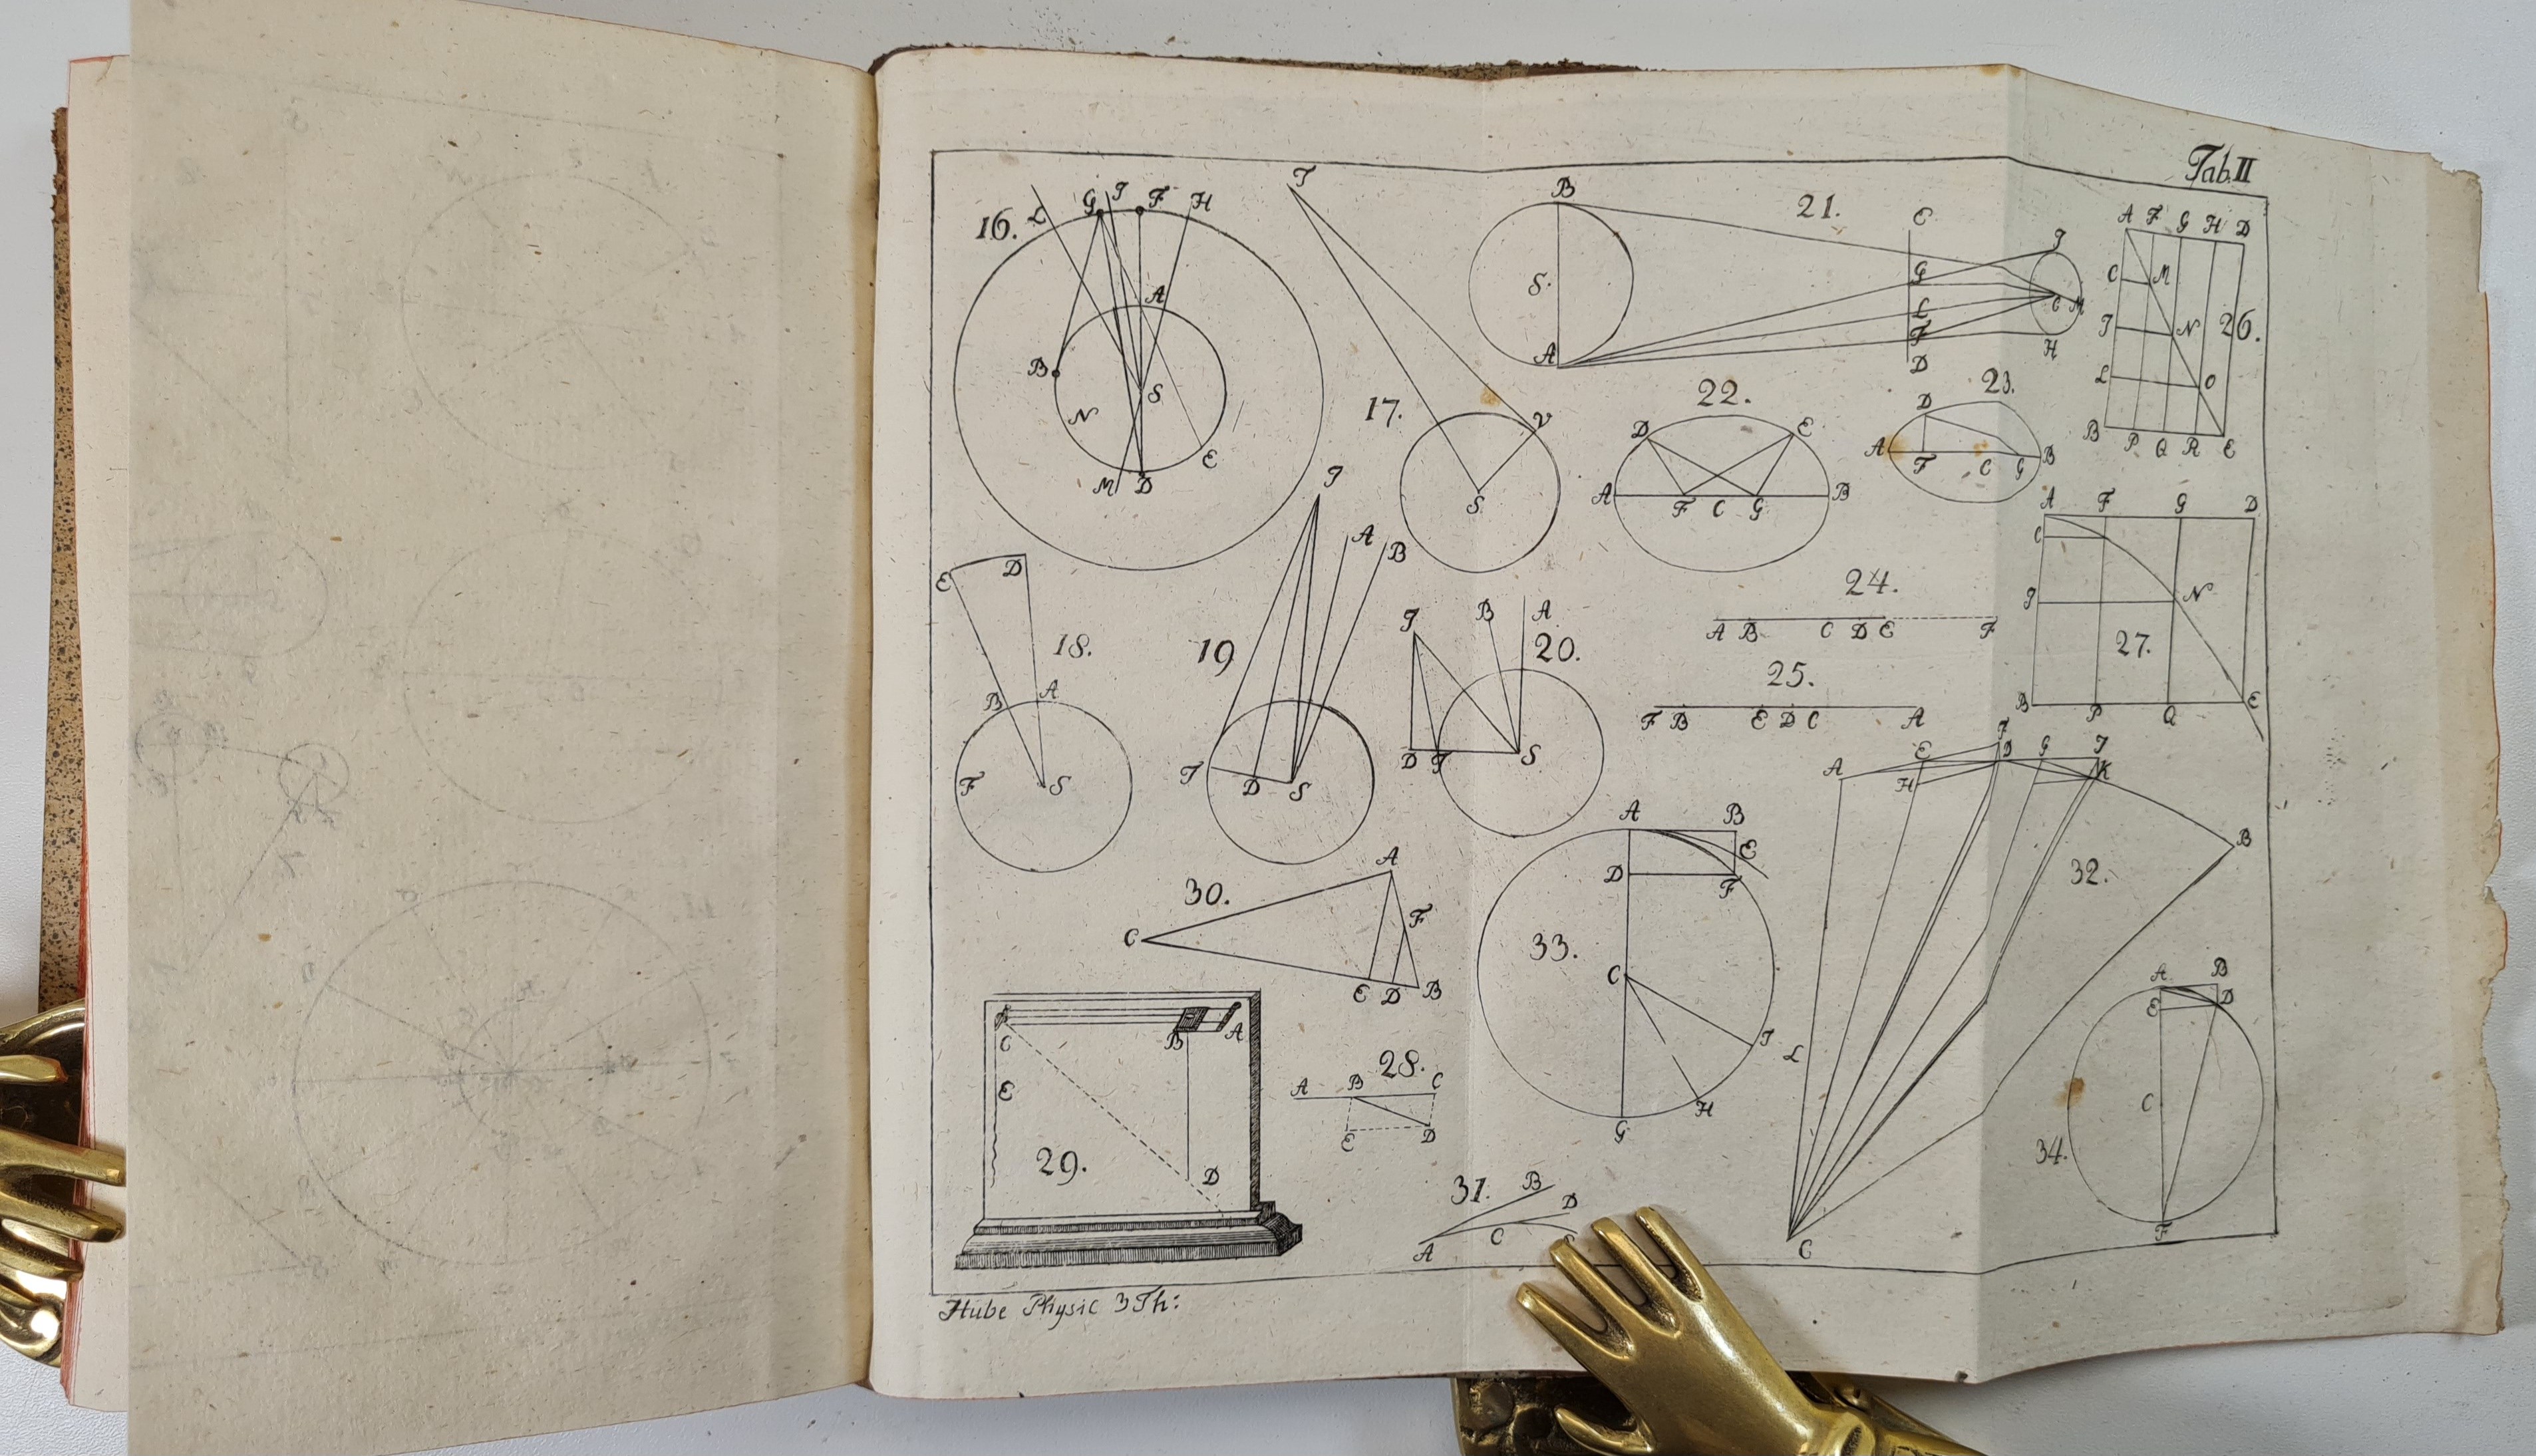 Tab. II
16.
L G I F H
A
B
S
N
M D E
T
17.
V
S
B
21.
S.
A
E
G
L
F
D
I
C M
H
A F G H D
C M
I N 26.
L O
B P Q R E
22.
D E
A F C G B
23.
D
A F C G B
A F G D
C
I N
27.
B P Q E
E D
18.
B A
F S
I
A B
19
T D S
I B A
20.
D T S
24.
A B C D E F
25.
F B E D C A
F
A E D G I
H K
B
32.
L
C
30.
A
C F
E D B
A B
E
D F
33.
C
I
H
G
A B
E D
C
34.
F
C B A
E
29.
D
28.
A B C
E D
31. B
D
A C
Hube Physic 3 Th: